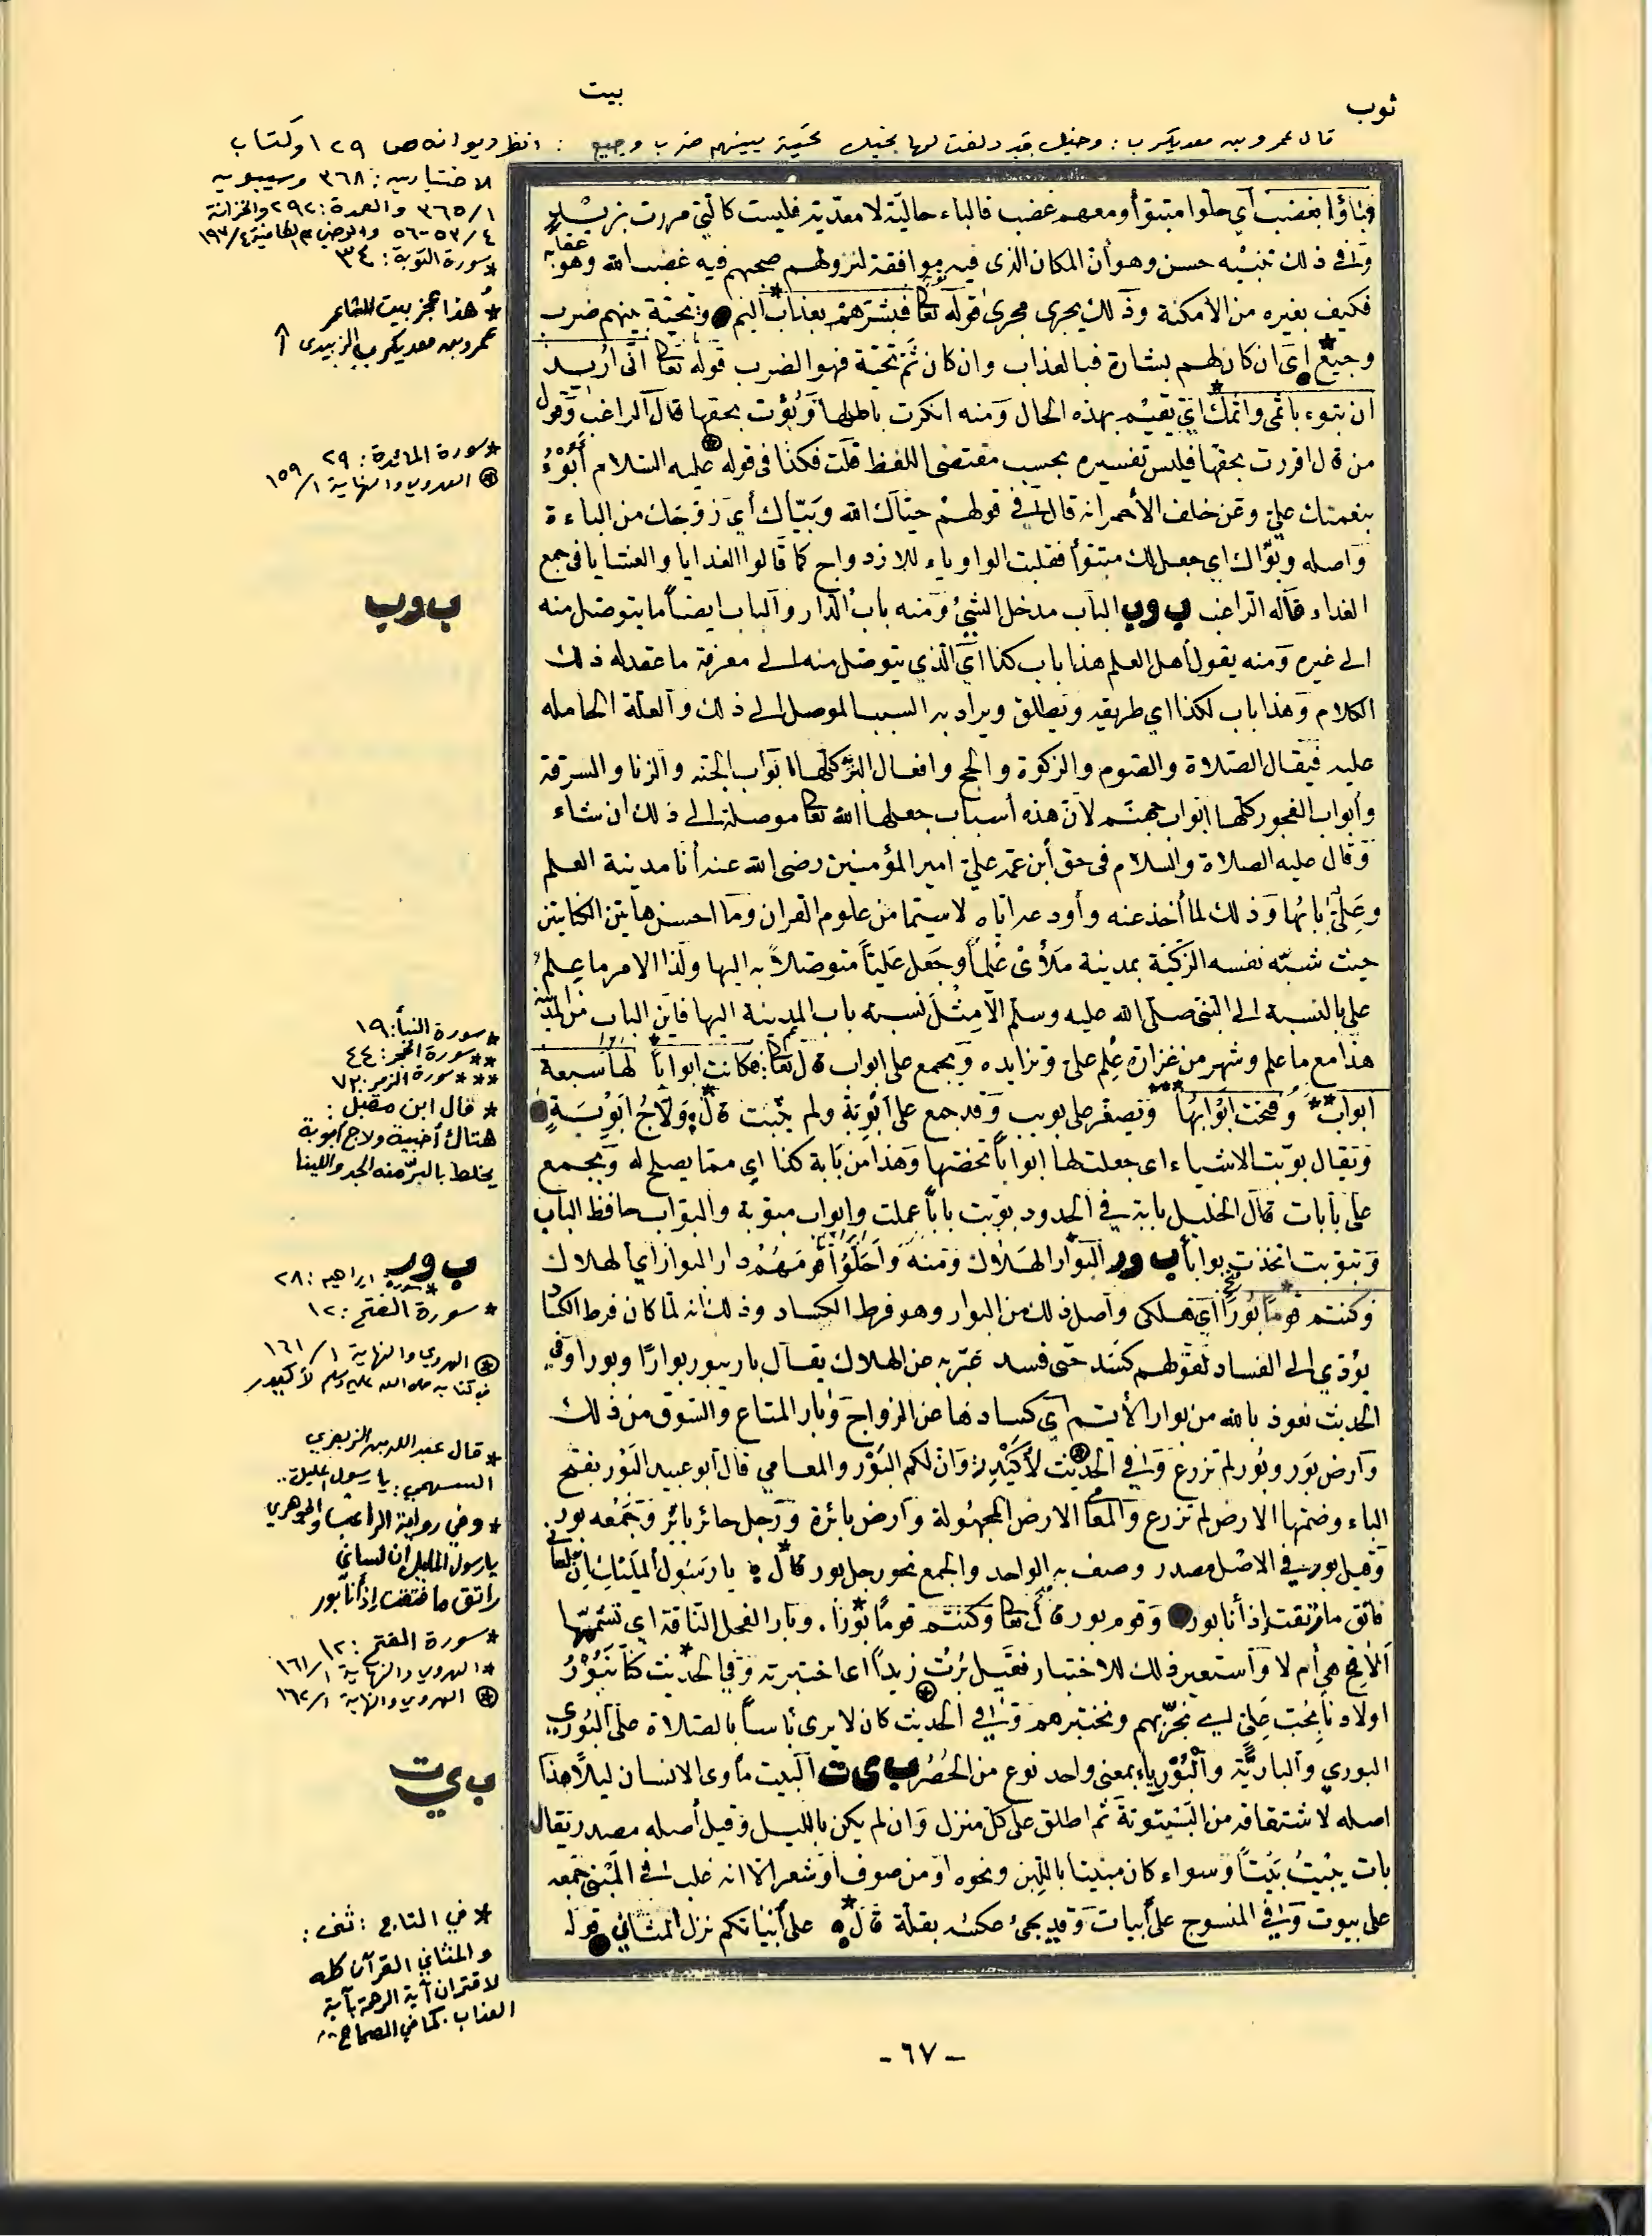 ثوب
بيت
قال عمرو بن معديكرب : وخيل قد دلفت لها بخيل تحية بينهم ضرب وجيع : انظر ديوانه ص ١٢٩ وكتاب
الاختيارين : ٣٦٨ وسيبويه
٣٦٥/١ والعمدة : ٢٩٢ والخزانة
٥٣/٤-٥٦
* سورة التوبة : ٣٤
* هذا عجز بيت للشاعر
عمرو بن معديكرب الزبيدي
فباؤا بغضب أي حلوا متبوأ ومعهم غضب فالباء حالية لا معدية فليست كالتي في مررت بزيد
وفي ذلك تنبيه حسن وهو أن المكان الذى فيه موافقة لنزولهم صحبهم فيه غضب الله وهو عقابه
فكيف بغيره من الأمكنة وذلك يجرى مجرى قوله تعا فبشرهم بعذاب أليم وتحية بينهم ضرب
وجيع أي ان كان لهم بشارة فبالعذاب وان كان ثم تحية فهو الضرب قوله تعا انى أريد
ان تبوء باثمى واثمك أي تقيم بهذه الحال ومنه انكرت باطلها وبؤت بحقها قال الراغب وقول
من قال اقررت بحقها فليس تفسيره بحسب مقتضى اللفظ قلت فكذا فى قوله عليه السلام أبوء
بنعمتك علي وعن خلف الأحمر انه قال في قولهم حياك الله وبياك أي زوجك من الباءة
وأصله وبوأك اي جعل لك متبوأ فقلبت الواو ياء للازدواج كما قالوا الغدايا والعشايا فى جمع
الغداء قاله الراغب ب و ب الباب مدخل الشئ ومنه باب الدار والباب ايضاً ما يتوصل منه
الى غيره ومنه يقول أهل العلم هذا باب كذا أي الذي يتوصل منه الى معرفة ما عقد له ذلك
الكلام وهذا باب لكذا اي طريقه ويطلق ويراد به السبب الموصل الى ذلك والعلة الحاملة
عليه فيقال الصلاة والصوم والزكوة والحج وافعال البر كلها ابواب الجنة والزنا والسرقة
وأبواب الفجور كلها ابواب جهنم لأن هذه أسباب جعلها الله تعا موصلة الى ذلك ان شاء
وقال عليه الصلاة والسلام فى حق أبن عمه علي امير المؤمنين رضى الله عنه أنا مدينة العلم
وعلي بابها وذلك لما أخذ عنه وأودعه اياه لا سيما من علوم القران وما احسن هاتين الكنايتين
حيث شبه نفسه الزكية بمدينة ملأى علماً وجعل علياً متوصلاً به اليها ولذا الامر ما علم
علي بالنسبة الى النبى صلى الله عليه وسلم الا مثل نسبة باب المدينة اليها فاين الباب من المدينة
هذا مع ما علم وشهر من غزارة علم علي وتزايده ويجمع على ابواب قال تعا : فكانت ابواباً لها سبعة
ابواب وفتحت أبوابها وتصغر على بويب وقد جمع على أبوبة ولم يثبت قال : ولاج أبوبة
ويقال بوبت الاشياء اى جعلت لها ابواباً تخصها وهذا من بابة كذا اي مما يصلح له ويجمع
على بابات قال الخليل بابة في الحدود بوبت باباً عملت وابواب مبوبة والبواب حافظ الباب
وتبوبت اتخذت بواباً ب و ر البوار الهلاك ومنه وأحلوا قومهم دار البوار أي الهلاك
وكنتم قوماً بوراً أي هلكى وأصل ذلك من البوار وهو فرط الكساد وذلك انه لما كان فرط الكساد
يؤدي الى الفساد لقولهم كسد حتى فسد عبر به عن الهلاك يقال بار يبور بواراً وبورا وفي
الحديث نعوذ بالله من بوار الأيم أي كسادها عن الزواج وبار المتاع والسوق من ذلك
وارض بور وبور لم تزرع وفي الحديث لأكيدر : وان لكم البور والمعامي قال أبو عبيد البور بفتح
الباء وضمها الارض لم تزرع والمعامي الارض المجهولة وارض بائرة ورجل حائر بائر وجمعه بور
وقيل بور في الاصل مصدر وصف به الواحد والجمع نحو رجل بور قال يا رسول المليك ان لسانى
فاتق ما رتقت إذ أنا بور وقوم بور قال تعا وكنتم قوماً بوراً . وبار الفحل الناقة اي تشمّها
ألاقح هي أم لا واستعير ذلك للاختبار فقيل برت زيداً اى اختبرته وفي الحديث كنا نبور
اولادنا بحب علي اي نجربهم ونختبرهم وفي الحديث كان لا يرى بأساً بالصلاة على البوري
البوري والبارية والبورياء بمعنى واحد نوع من الحصر ب ي ت البيت مأوى الانسان ليلاً هذا
اصله لاشتقاقه من البيتوتة ثم اطلق على كل منزل وان لم يكن بالليل وقيل أصله مصدر يقال
بات يبيت بيتاً وسواء كان مبنيا باللبن ونحوه او من صوف او شعر الا انه غلب في المبنى جمعه
على بيوت وفي المنسوج على أبيات وقد يجئ عكسه بقلة قال على أبياتكم نزل المثاني قوله
* سورة المائدة : ٢٩
الهروي والنهاية ١٥٩/١
ب و ب
* سورة النبأ : ١٩
** سورة الحجر : ٤٤
*** سورة الزمر : ٧٣
* قال ابن مقبل :
هتاك أخبية ولاج أبوبة
يخلط بالبر منه الجد واللينا
ب و ر
* سورة ابراهيم : ٢٨
* سورة الفتح : ١٢
الهروي والنهاية ١٦١/١
في كتابه صلى الله عليه وسلم لأكيدر
* قال عبد الله بن الزبعرى
السهمي : يا رسول المليك ..
* وفي رواية الراغب والجوهري
يا رسول المليك إن لساني
راتق ما فتقت إذ أنا بور
* سورة الفتح : ١٢
* الهروي والنهاية ١٦١/١
الهروي والنهاية ١٦٢/١
ب ي ت
* في التاج : ثنى :
والمثاني القرآن كله
لاقتران آية الرحمة بآية
العذاب . كما في الصحاح ..
- ٦٧ -